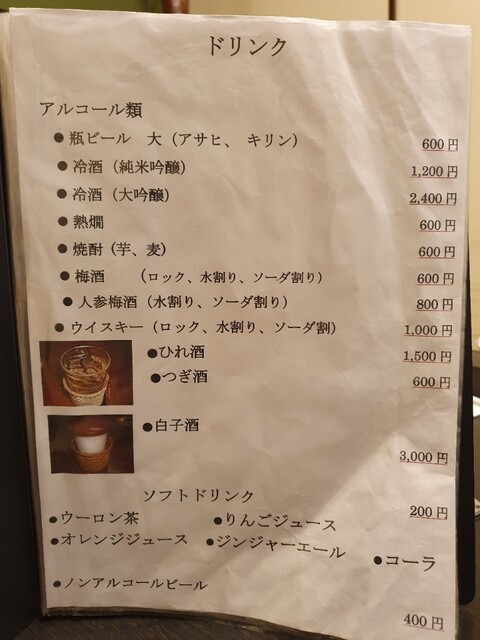 ドリンク
アルコール類
●瓶ビール　大（アサヒ、キリン） 600円
●冷酒（純米吟醸） 1,200円
●冷酒（大吟醸） 2,400円
●熱燗 600円
●焼酎（芋、麦） 600円
●梅酒　（ロック、水割り、ソーダ割り） 600円
●人参梅酒（水割り、ソーダ割り） 800円
●ウイスキー（ロック、水割り、ソーダ割） 1,000円
●ひれ酒 1,500円
●つぎ酒 600円
●白子酒
3,000円
ソフトドリンク
200円
●ウーロン茶 ●りんごジュース
●オレンジジュース ●ジンジャーエール ●コーラ
●ノンアルコールビール
400円